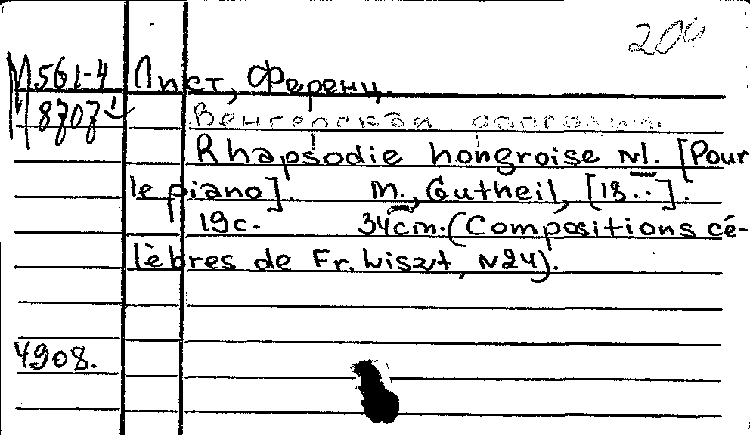 200
М561-4 Лист, Ференц.
8707 Венгерская рапсодия.
Rhapsodie hongroise N1. [Pour
le piano]. М., Gutheil, [18..].
19с. 34cm. (Compositions cé-
lèbres de Fr. Liszt, N24).
4908.